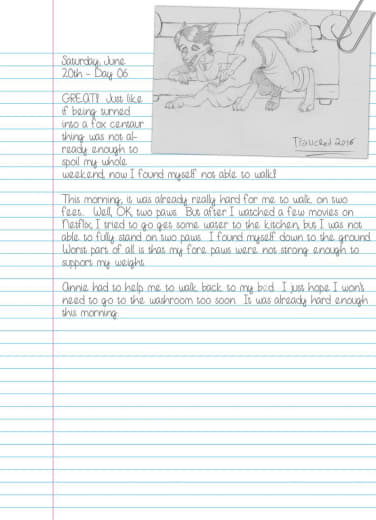 Saturday, June
20th - Day 06
GREAT!! Just like
if being turned
into a fox centaur
thing was not al-
ready enough to
spoil my whole
weekend, now I found myself not able to walk!!
This morning, it was already really hard for me to walk on two
feet... Well, OK, two paws. But after I watched a few movies on
Netflix, I tried to go get some water to the kitchen, but I was not
able to fully stand on two paws. I found myself down to the ground.
Worst part of all is that my fore paws were not strong enough to
support my weight.
Annie had to help me to walk back to my bed. I just hope I won't
need to go to the washroom too soon. It was already hard enough
this morning.
2016